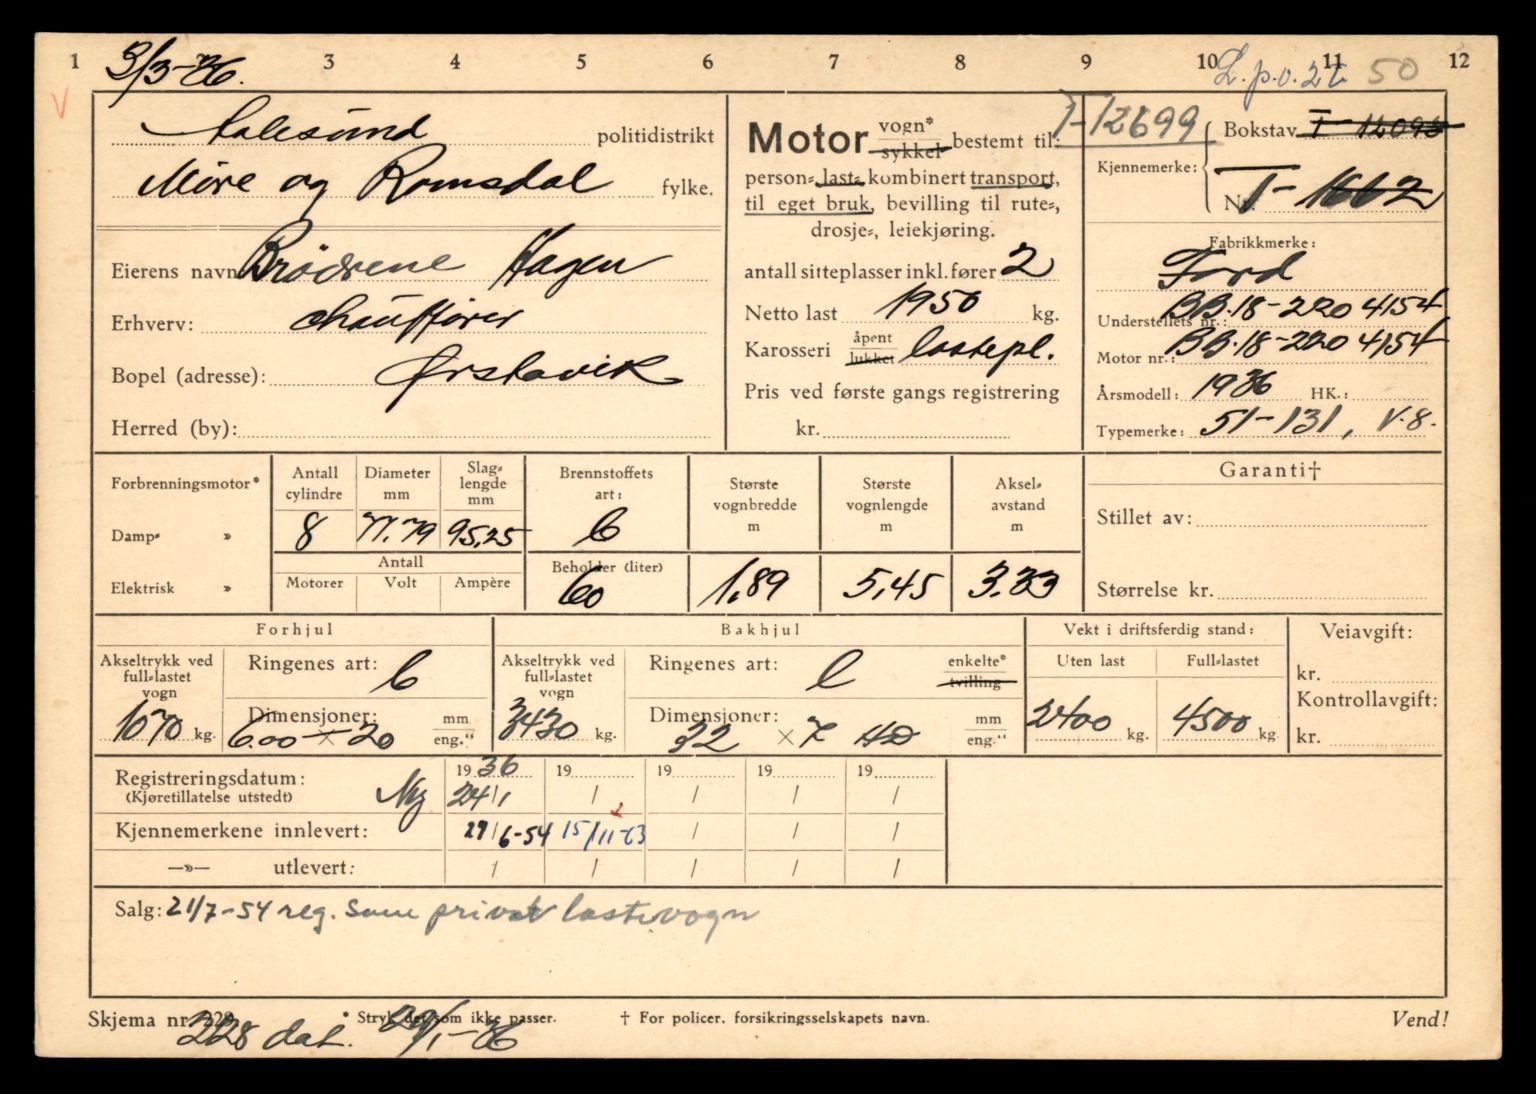 1 3/3-36. 3 4 5 6 7 8 9 10 11 12
L.p.o. 2t. 50
V
Aalesund politidistrikt
Møre og Romsdal fylke.
Eierens navn Brødrene Hagen
Erhverv: chauffører
Bopel (adresse): Ørstavik
Herred (by):
Motor vogn* sykkel bestemt til:
person-, last- kombinert transport,
til eget bruk, bevilling til rute-,
drosje-, leiekjøring.
antall sitteplasser inkl. fører 2
Netto last 1950 kg.
Karosseri åpent lukket lastepl.
Pris ved første gangs registrering
kr.
T-12699
Kjennemerke: Bokstav T-12093
Nr. T-1662
Fabrikkmerke:
Ford
Understellets nr.: BB.18-2204154
Motor nr.: BB.18-2204154
Årsmodell: 1936 HK.:
Typemerke: 51-131, V.8.
Forbrenningsmotor*
Damp- »
Elektrisk »
Antall cylindre 8
Diameter mm 77.79
Slaglengde mm 95,25
Antall
Motorer Volt Ampère
Brennstoffets art: b
Beholder (liter) 60
Største vognbredde m 1,89
Største vognlengde m 5,45
Akselavstand m 3.33
Garanti†
Stillet av:
Størrelse kr.
Forhjul
Akseltrykk ved full-lastet vogn 1070 kg.
Ringenes art: l
Dimensjoner: 6.00 × 20 mm eng."
Bakhjul
Akseltrykk ved full-lastet vogn 3430 kg.
Ringenes art: l enkelte* tvilling
Dimensjoner: 32 × 7 HD mm eng."
Vekt i driftsferdig stand:
Uten last Full-lastet
2400 kg. 4500 kg
Veiavgift:
kr.
Kontrollavgift:
kr.
Registreringsdatum: 1936 19 19 19 19
(Kjøretillatelse utstedt) Ny 24/1 / / / /
Kjennemerkene innlevert: 29/6-54 15/11-63 / / /
—»— utlevert: / / / / /
Salg: 21/7-54 reg. som privat lastevogn
Skjema nr. 228 * Stryk det som ikke passer. † For policer, forsikringsselskapets navn. Vend!
228 dat. 29/1-36